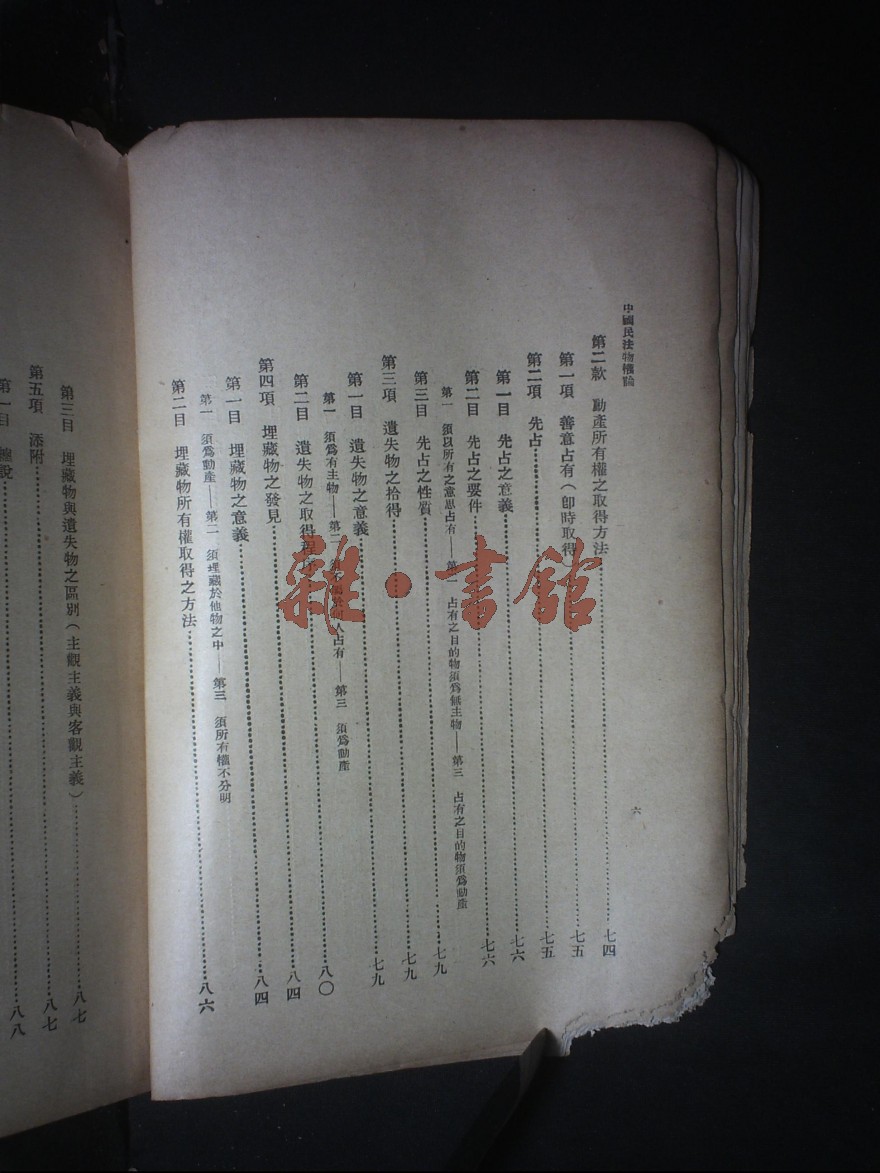 中國民法物權論
六
第二款 動產所有權之取得方法……七四
第一項 善意占有(卽時取得)……七五
第二項 先占……七五
第一目 先占之意義……七六
第二目 先占之要件……七六
第一 須以所有之意思占有——第二 占有之目的物須爲無主物——第三 占有之目的物須爲動產
第三目 先占之性質……七九
第三項 遺失物之拾得……七九
第一目 遺失物之意義……七九
第一 須爲有主物——第二 人占有——第三 須爲動產
第二目 遺失物之取得程序……八〇
第四項 埋藏物之發見……八四
第一目 埋藏物之意義……八四
第一 須爲動產——第二 須埋藏於他物之中——第三 須所有權不分明
第二目 埋藏物所有權取得之方法……八六
第三目 埋藏物與遺失物之區別(主觀主義與客觀主義)……八七
第五項 添附……八七
第一目 總說……八八
雜·書館